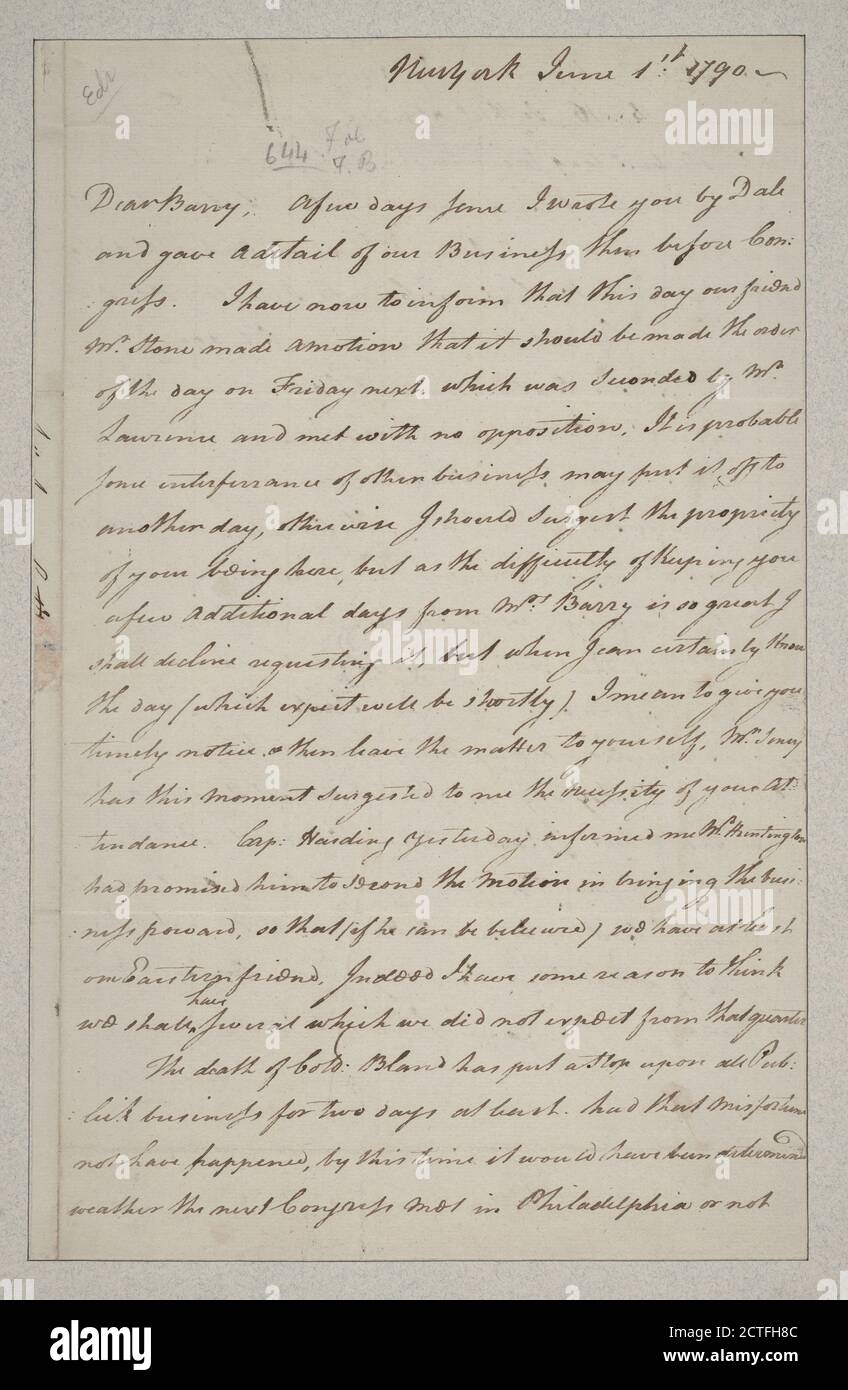 NewYork June 1st 1790
Edr
644
Dear Barry, A few days sence I wrote you by Dale
and gave a detail of our Business then before Con:
:gress. I have now to inform that this day our friend
Mr Stone made a motion that it should be made the order
of the day on Friday next. which was seconded by Mr
Lawrence and met with no opposition, It is probable
some interferrance of other business may put it off to
another day, otherwise I should sugest the propriety
of your being here, but as the difficulty of keeping you
a few additional days from Mrs Barry is so great I
shall decline requesting it, but when I can certainly know
the day (which expect will be shortly) I mean to give you
timely notice & then leave the matter to yourself, Mr
has this moment sugested to me the necessity of your at
tendance. Cap: Harding yesterday informed me Mr Huntington
had promised him to second the motion in bringing the busi:
:ness forward, so that (if he can be believed) we have at least
one Eastern friend, Indeed I have some reason to think
have
we shall several which we did not expect from that quarter
The death of Colo: Bland has put a stop upon all Pub:
:lick business for two days at least. had that misfortune
not have happened, by this time it would have been determined
weather the next Congress met in Philadelphia or not
alamy
Image ID: 2CTFH8C
www.alamy.com